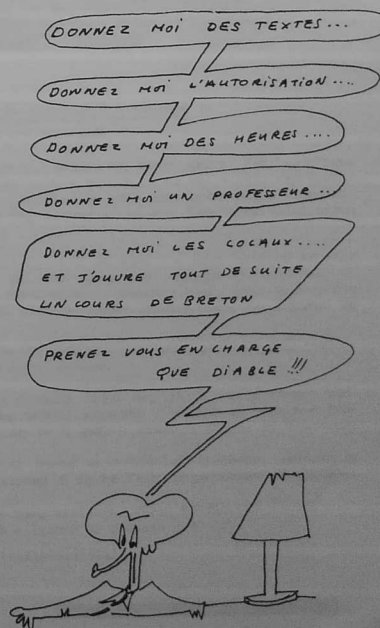 DONNEZ MOI DES TEXTES...
DONNEZ MOI L'AUTORISATION....
DONNEZ MOI DES HEURES....
DONNEZ MOI UN PROFESSEUR...
DONNEZ MOI LES LOCAUX....
ET J'OUVRE TOUT DE SUITE
UN COURS DE BRETON
PRENEZ VOUS EN CHARGE
QUE DIABLE !!!